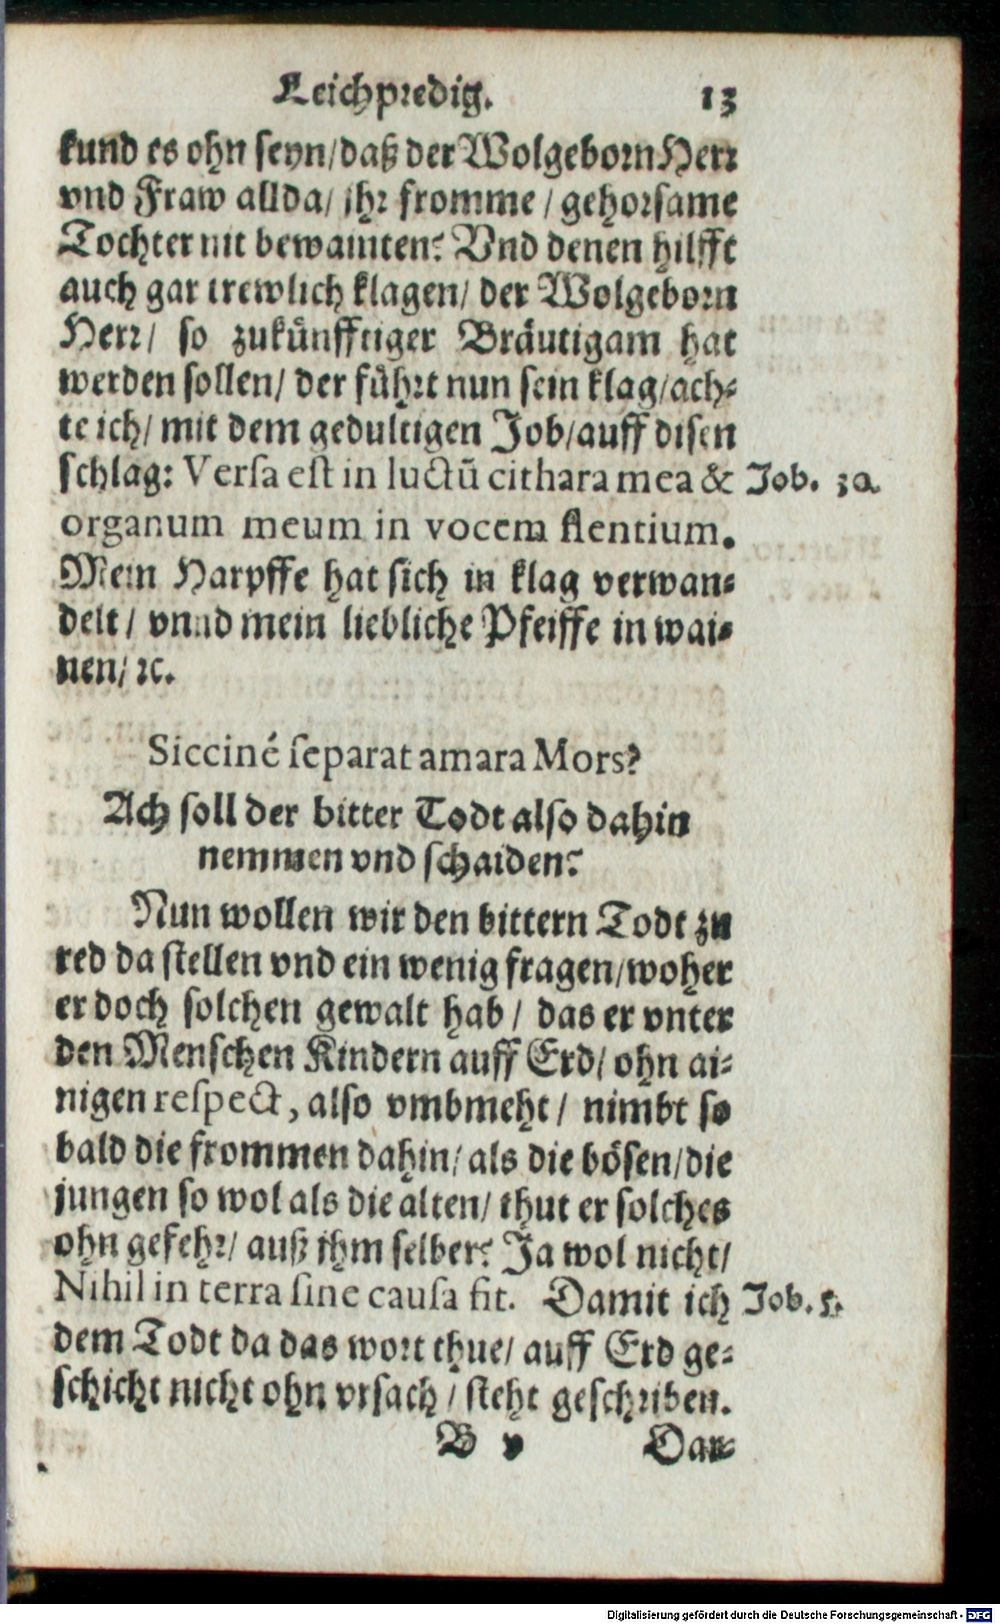 Leichpredig. 13
kund es ohn seyn/daß der Wolgeborn Herr
vnd Fraw allda/ ihr fromme / gehorsame
Tochter nit bewainten? Vnd denen hilfft
auch gar trewlich klagen/ der Wolgeborn
Herr/ so zukünfftiger Bräutigam hat
werden sollen/ der führt nun sein klag/ach-
te ich/ mit dem gedultigen Job/auff disen
schlag: Versa est in luctū cithara mea & Job. 30.
organum meum in vocem flentium.
Mein Harpffe hat sich in klag verwan-
delt / vnnd mein liebliche Pfeiffe in wai-
nen/ ꝛc.
Sicciné separat amara Mors?
Ach soll der bitter Todt also dahin
nemmen vnd schaiden?
Nun wollen wir den bittern Todt zu
red da stellen vnd ein wenig fragen/woher
er doch solchen gewalt hab / das er vnter
den Menschen Kindern auff Erd/ ohn ai-
nigen respect, also vmbmeht / nimbt so
bald die frommen dahin/ als die bösen/die
jungen so wol als die alten/ thut er solches
ohn gefehr/ auß ihm selber? Ja wol nicht/
Nihil in terra sine causa fit. Damit ich Job. 5.
dem Todt da das wort thue/ auff Erd ge-
schicht nicht ohn vrsach / steht geschriben.
B v Dar-
Digitalisierung gefördert durch die Deutsche Forschungsgemeinschaft - DFG